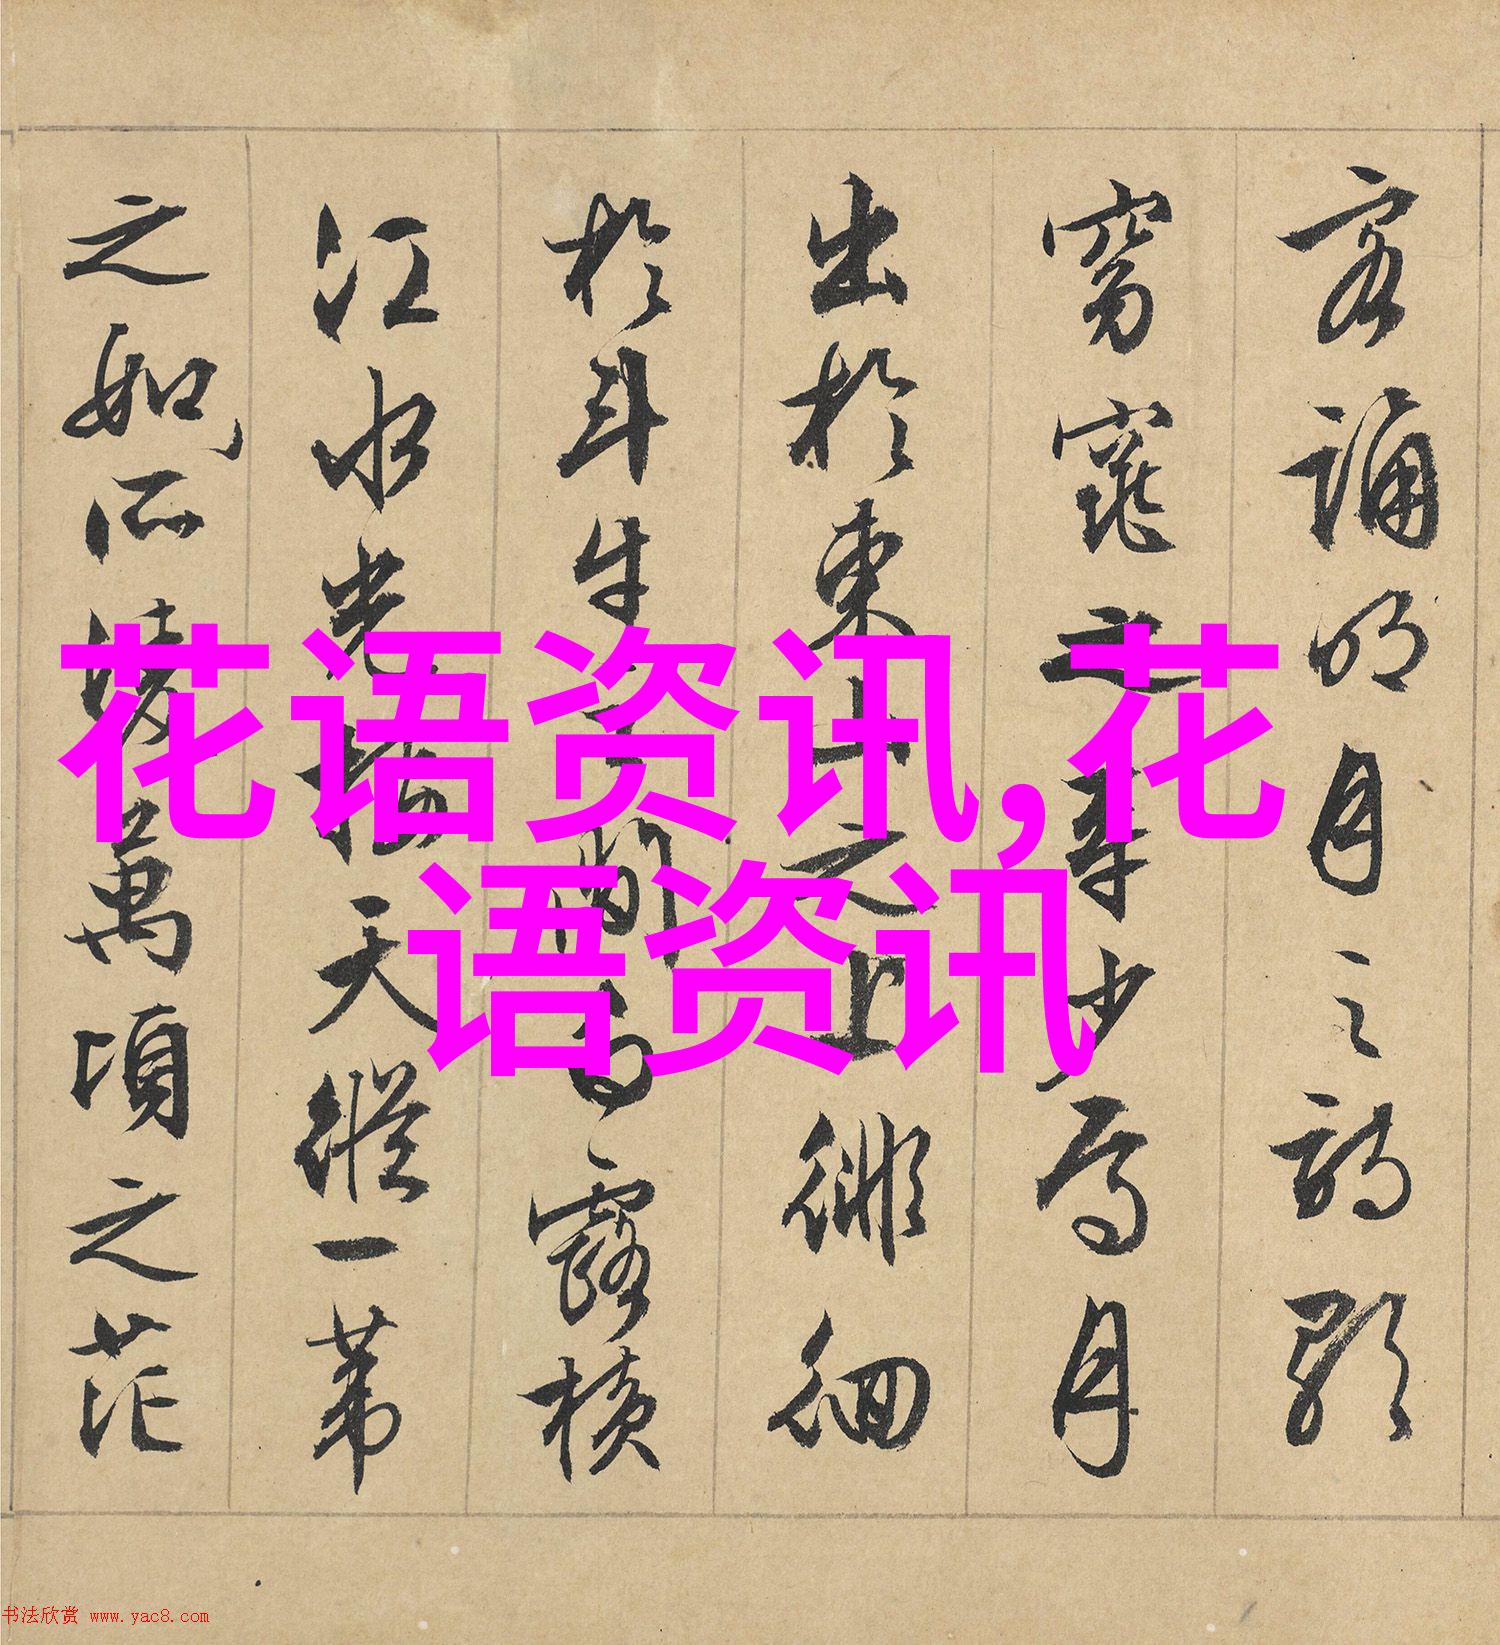 客誦明月之詩歌
窈窕之章少焉月
出於東山之上徘徊
於斗牛之間白露橫
江水光接天縱一葦
之如所凌萬頃之茫
花语资讯,花
语资讯
书法欣赏 www.yac8.com